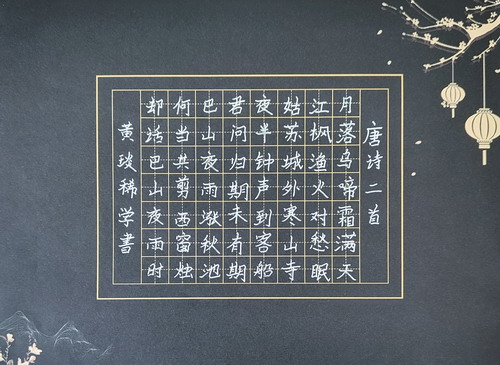 唐诗二首
月落乌啼霜满天
江枫渔火对愁眠
姑苏城外寒山寺
夜半钟声到客船
君问归期未有期
巴山夜雨涨秋池
何当共剪西窗烛
却话巴山夜雨时
黄琰稀学書